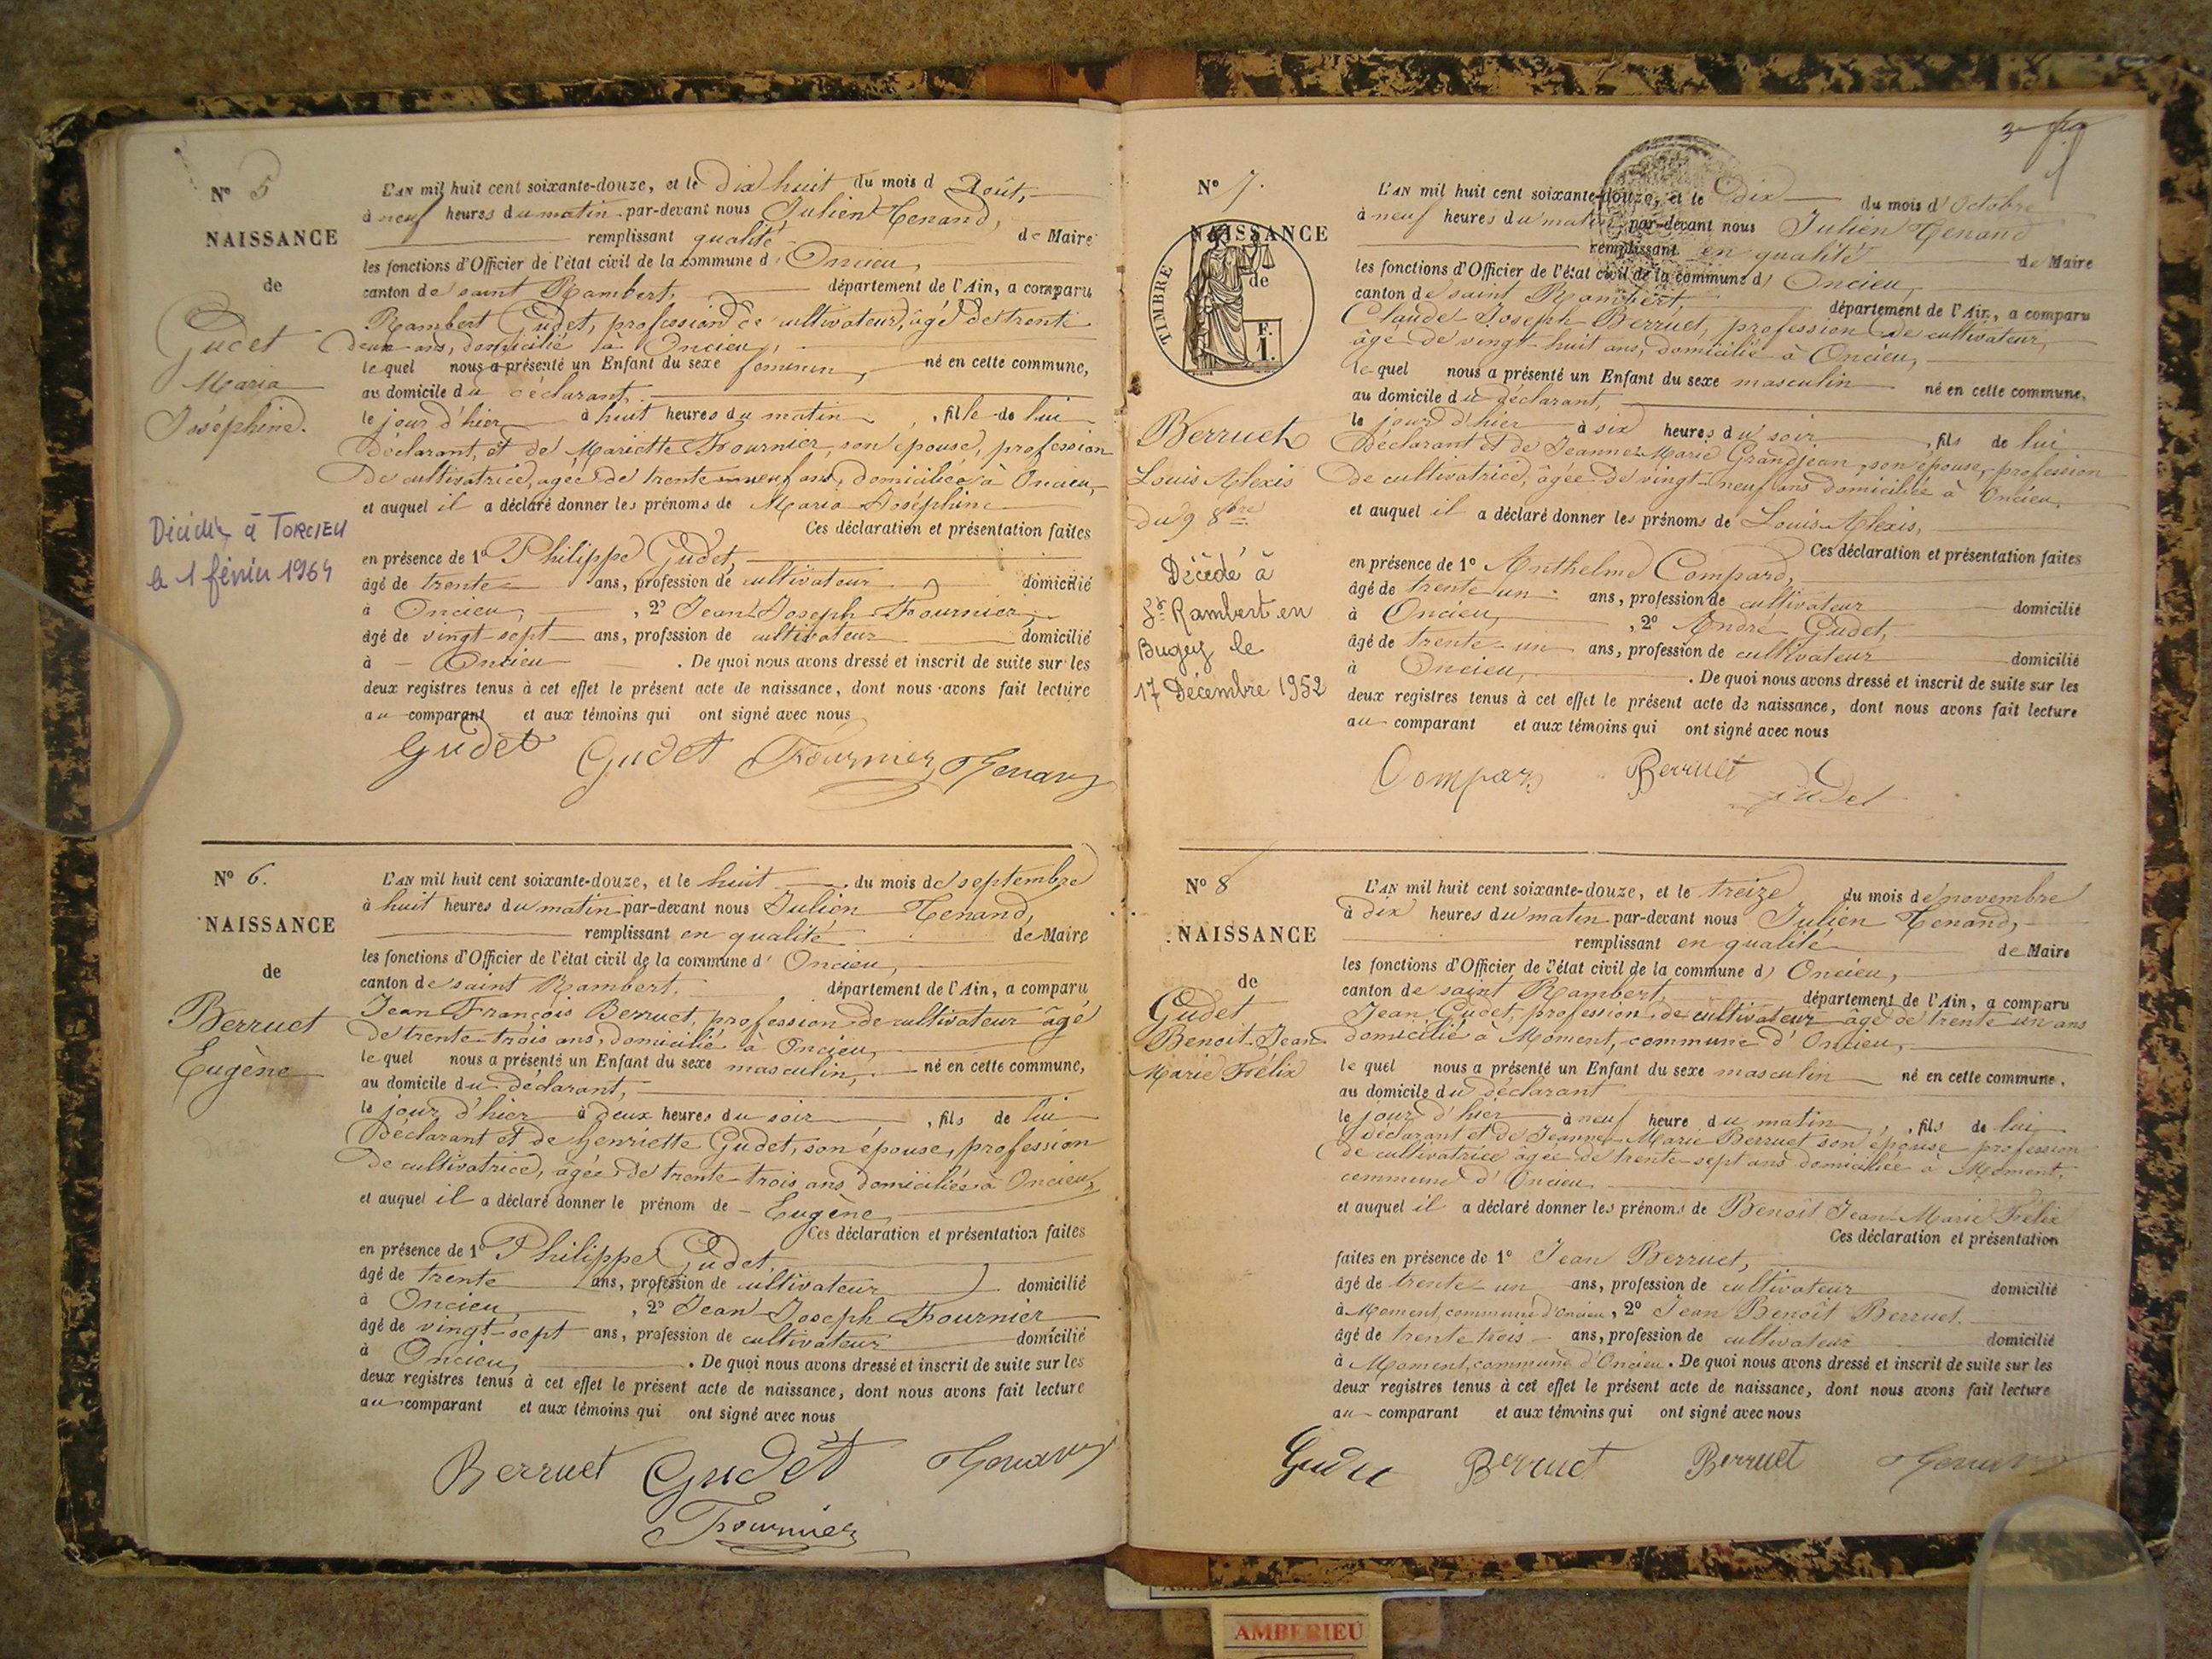 N° 5
NAISSANCE
de
Gudet
Maria
Joséphine.
Décédée à TORCIEU
le 1 février 1964
L'AN mil huit cent soixante-douze, et le dix huit du mois d'Août,
à neuf heures du matin par-devant nous Julien Tenand,
remplissant qualité de Maire
les fonctions d'Officier de l'état civil de la commune d'Oncieu,
canton de saint Rambert, département de l'Ain, a comparu
Rambert Gudet, profession de cultivateur, âgé de trente
deux ans, domicilié à Oncieu,
lequel nous a présenté un Enfant du sexe feminin, né en cette commune,
au domicile du déclarant,
le jour d'hier à huit heures du matin, fille de lui
déclarant, et de Mariette Fournier, son épouse, profession
de cultivatrice, agée de trente neuf ans, domiciliée à Oncieu,
et auquel il a déclaré donner les prénoms de Maria Joséphine
Ces déclaration et présentation faites
en présence de 1° Philippe Gudet,
âgé de trente ans, profession de cultivateur domicilié
à Oncieu, , 2° Jean Joseph Fournier,
âgé de vingt sept ans, profession de cultivateur domicilié
à Oncieu . De quoi nous avons dressé et inscrit de suite sur les
deux registres tenus à cet effet le présent acte de naissance, dont nous avons fait lecture
au comparant et aux témoins qui ont signé avec nous
Gudet Gudet Fournier Tenand
N° 6.
NAISSANCE
de
Berruet
Eugène
L'AN mil huit cent soixante-douze, et le huit du mois de septembre
à huit heures du matin par-devant nous Julien Tenand,
remplissant en qualité de Maire
les fonctions d'Officier de l'état civil de la commune d'Oncieu,
canton de saint Rambert, département de l'Ain, a comparu
Jean François Berruet, profession de cultivateur âgé
de trente-trois ans, domicilié à Oncieu,
lequel nous a présenté un Enfant du sexe masculin, né en cette commune,
au domicile du déclarant,
le jour d'hier à deux heures du soir , fils de lui
déclarant et de Henriette Gudet, son épouse, profession
de cultivatrice, agée de trente trois ans domiciliée à Oncieu,
et auquel il a déclaré donner le prénom de Eugène,
Ces déclaration et présentation faites
en présence de 1° Philippe Gudet,
âgé de trente ans, profession de cultivateur domicilié
à Oncieu, , 2° Jean Joseph Fournier
âgé de vingt-sept ans, profession de cultivateur domicilié
à Oncieu, . De quoi nous avons dressé et inscrit de suite sur les
deux registres tenus à cet effet le présent acte de naissance, dont nous avons fait lecture
au comparant et aux témoins qui ont signé avec nous
Berruet Gudet Tenand
Fournier
N° 7.
NAISSANCE
de
TIMBRE
Berruet
Louis Alexis
du 9 8bre
Décédé à
St Rambert en
Bugey le
17 Décembre 1952
L'AN mil huit cent soixante-douze, et le dix du mois d'Octobre
à neuf heures du matin par-devant nous Julien Tenand
remplissant en qualité de Maire
les fonctions d'Officier de l'état civil de la commune d'Oncieu,
canton de saint Rambert, département de l'Ain, a comparu
Claude Joseph Berruet, profession de cultivateur,
âgé de vingt-huit ans, domicilié à Oncieu,
lequel nous a présenté un Enfant du sexe masculin né en cette commune,
au domicile du déclarant,
le jour d'hier à six heures du soir , fils de lui
déclarant et de Jeanne-Marie Grandjean, son épouse, profession
de cultivatrice, âgée de vingt-neuf ans domiciliée à Oncieu,
et auquel il a déclaré donner les prénoms de Louis Alexis,
Ces déclaration et présentation faites
en présence de 1° Anthelme Compard,
âgé de trente un ans, profession de cultivateur domicilié
à Oncieu, , 2° André Gudet,
âgé de trente un ans, profession de cultivateur domicilié
à Oncieu, . De quoi nous avons dressé et inscrit de suite sur les
deux registres tenus à cet effet le présent acte de naissance, dont nous avons fait lecture
au comparant et aux témoins qui ont signé avec nous
Compard Berruet Gudet
N° 8
NAISSANCE
de
Gudet
Benoit-Jean
Marie Félix
L'AN mil huit cent soixante-douze, et le treize du mois de novembre
à dix heures du matin par-devant nous Julien Tenand,
remplissant en qualité de Maire
les fonctions d'Officier de l'état civil de la commune d'Oncieu,
canton de saint Rambert, département de l'Ain, a comparu
Jean Gudet, profession de cultivateur âgé de trente un ans
domicilié à Moment, commune d'Oncieu,
lequel nous a présenté un Enfant du sexe masculin né en cette commune,
au domicile du déclarant
le jour d'hier à neuf heure du matin , fils de lui
déclarant et de Jeanne-Marie Berruet son épouse profession
de cultivatrice âgée de trente-sept ans domiciliée à Moment,
commune d'Oncieu
et auquel il a déclaré donner les prénoms de Benoit Jean Marie Félix
Ces déclaration et présentation
faites en présence de 1° Jean Berruet,
âgé de trente un ans, profession de cultivateur domicilié
à Moment, commune d'Oncieu, 2° Jean Benoit Berruet.
âgé de trente trois ans, profession de cultivateur domicilié
à Moment, commune d'Oncieu. De quoi nous avons dressé et inscrit de suite sur les
deux registres tenus à cet effet le présent acte de naissance, dont nous avons fait lecture
au comparant et aux témoins qui ont signé avec nous
Gudet Berruet Berruet Tenand
AMBERIEU